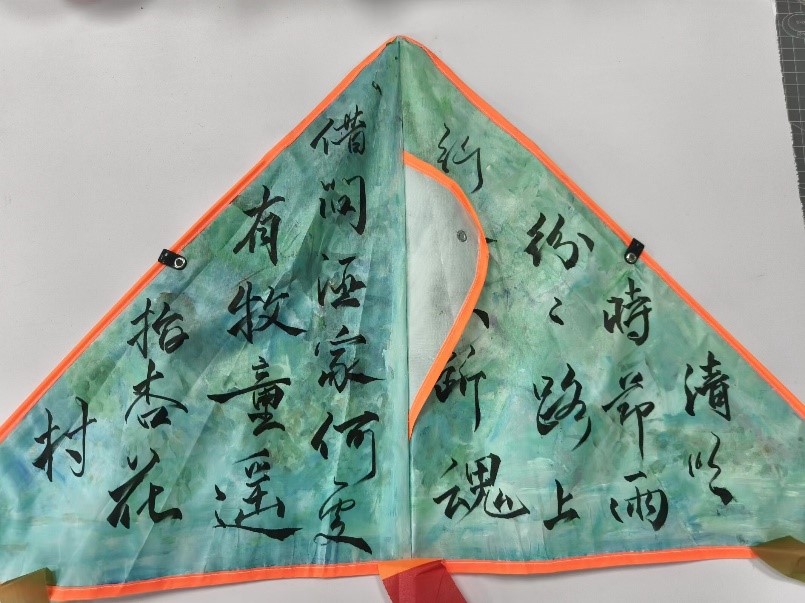 清明
時節雨
紛〻路上
行断魂
借問酒家何處
有牧童遥
指杏花
村